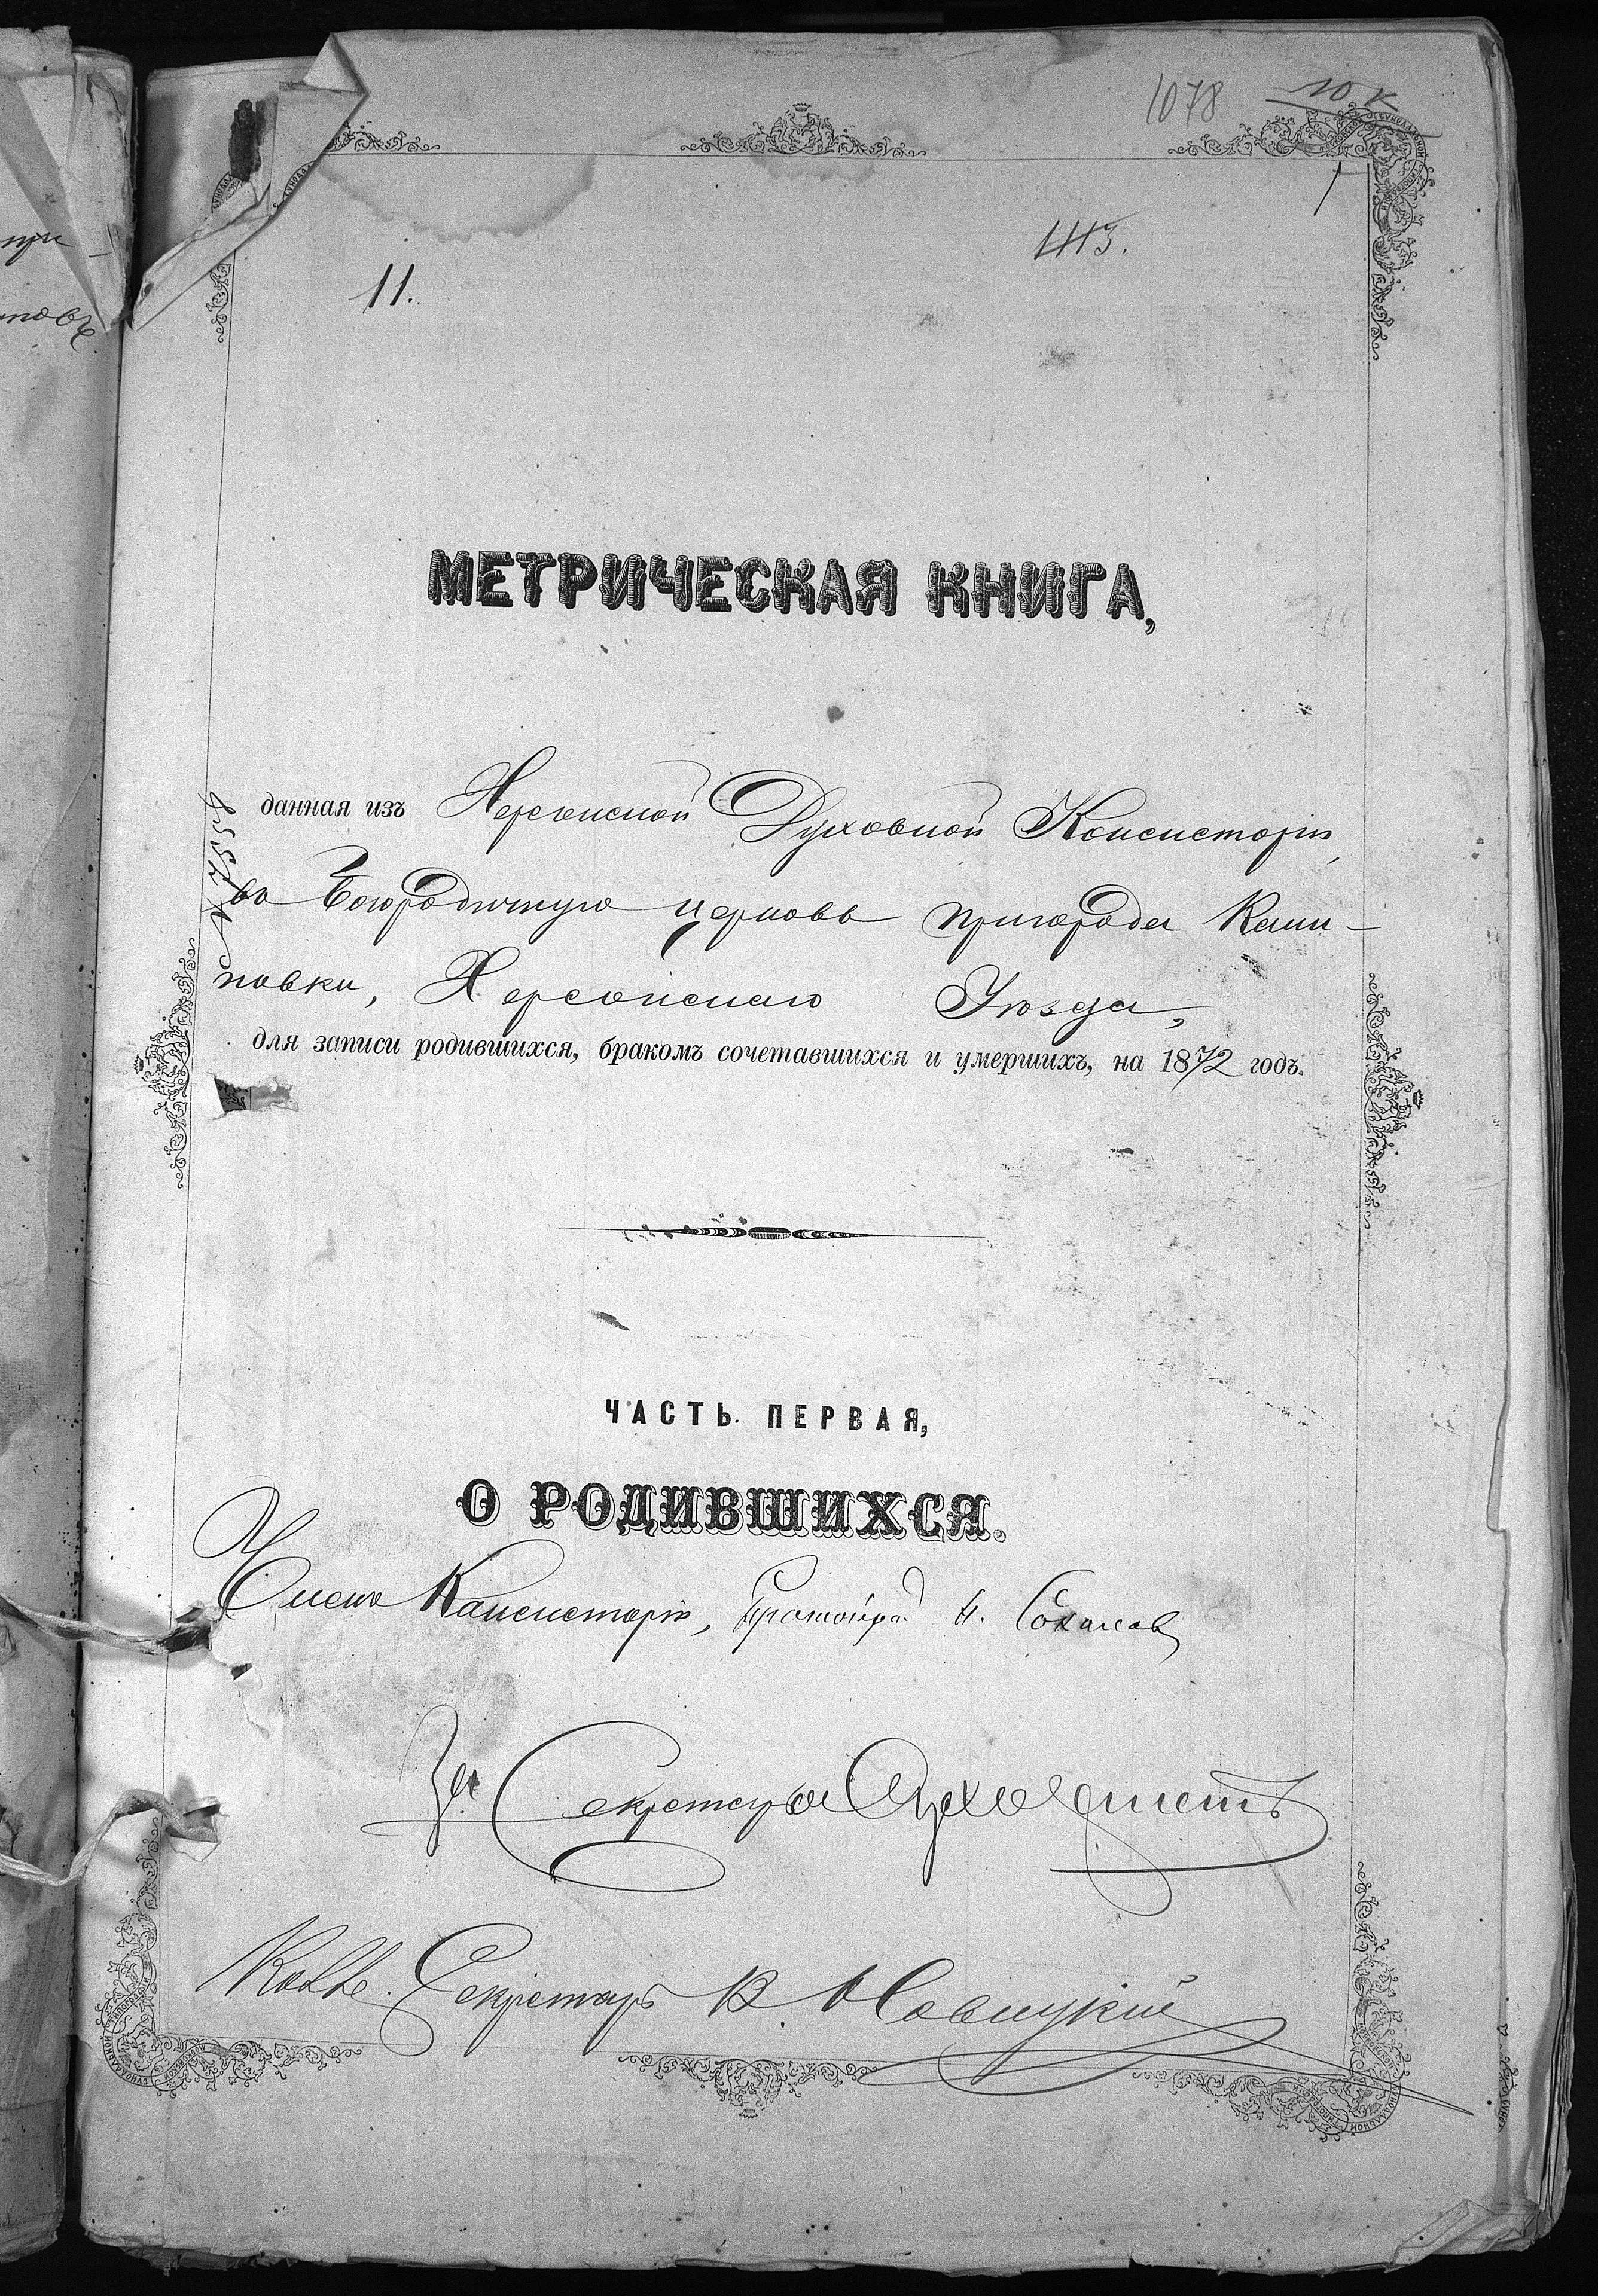 1078
10 к
1
11.
1113.
МЕТРИЧЕСКАЯ КНИГА,
№ 7558
данная изъ Херсонской Духовной Консисторіи,
въ Богородичную церковь пригорода Кали-
новки, Херсонскаго Уѣзда,
для записи родившихся, бракомъ сочетавшихся и умершихъ, на 1872 годъ.
ЧАСТЬ ПЕРВАЯ,
О РОДИВШИХСЯ.
Членъ Консисторіи, Протоіерей Н. Соколовъ
За Секретаря
Секретарь В Новицкій